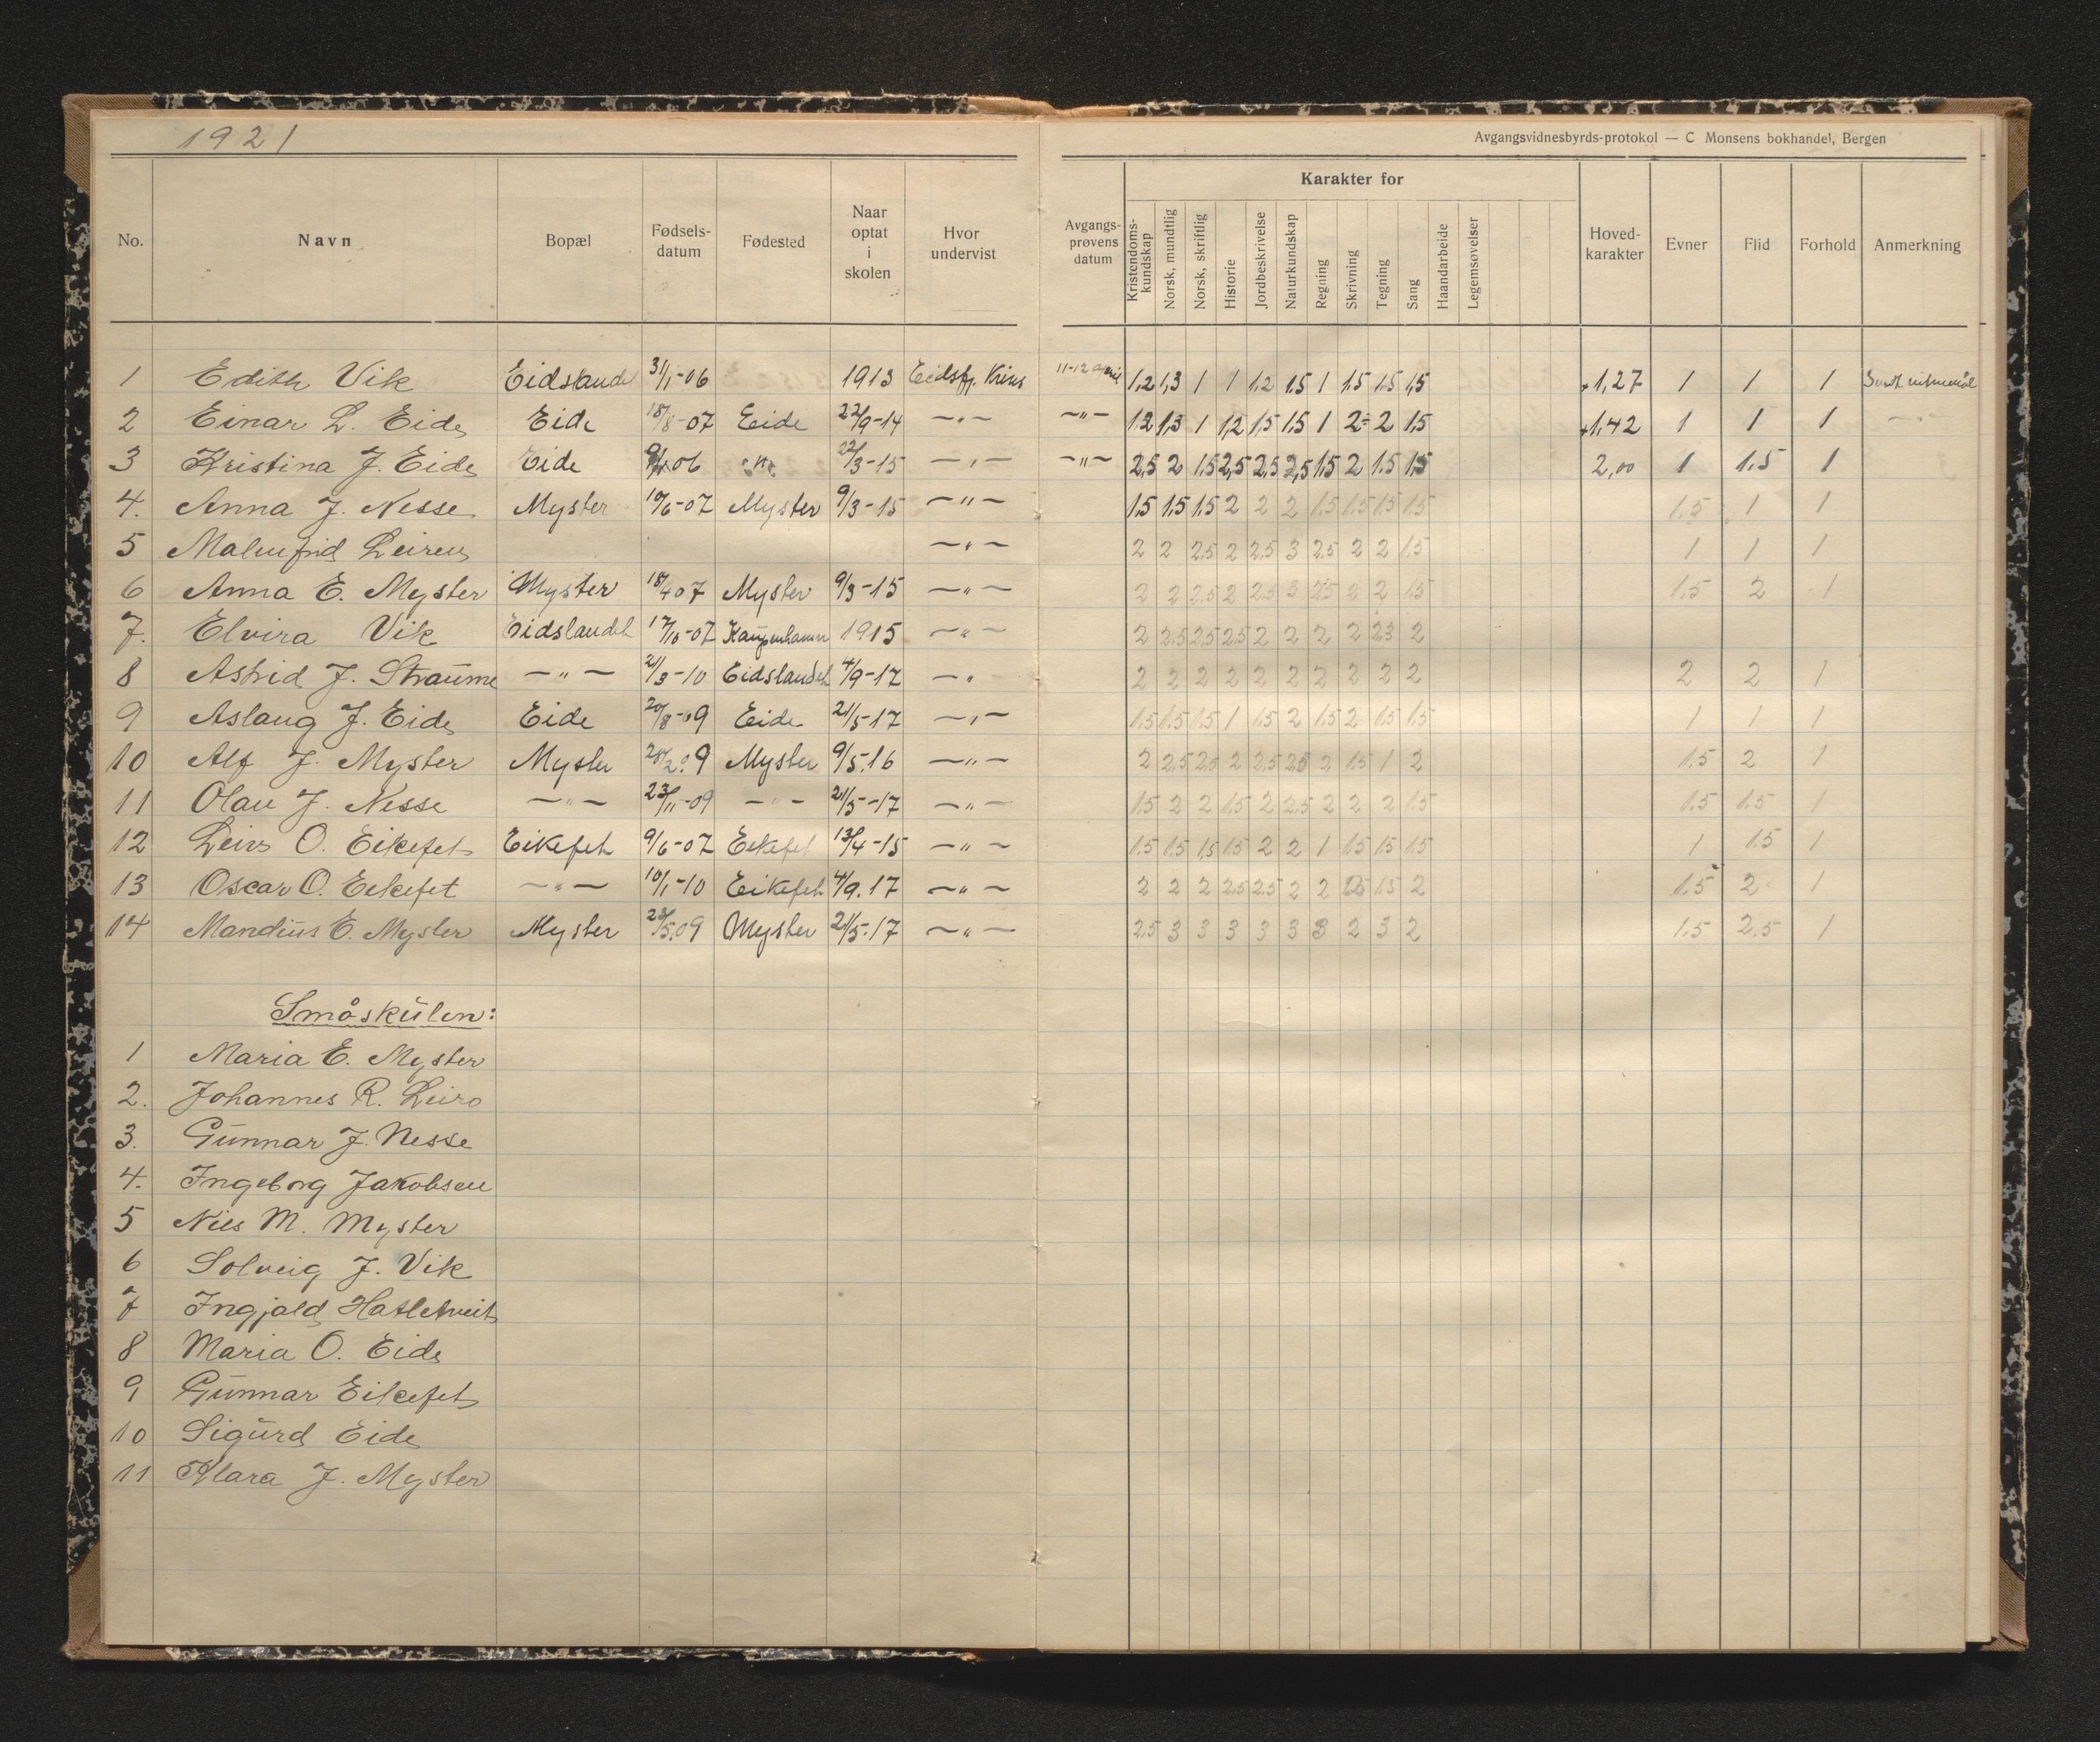 1921
Avgangsvidnesbyrds-protokol — C Monsens bokhandel, Bergen
No. Navn Bopæl Fødsels-datum Fødested Naar optat i skolen Hvor undervist Avgangs-prøvens datum Karakter for Kristendoms-kundskap Norsk, mundtlig Norsk, skriftlig Historie Jordbeskrivelse Naturkundskap Regning Skrivning Tegning Sang Haandarbeide Legemsøvelser Hoved-karakter Evner Flid Forhold Anmerkning
1 Edith Vik Eidslandet 31/1-06 1913 Eidsfj. Krins 11-12 april 1,2 1,3 1 1 1,2 1,5 1 1,5 1,5 1,5 1,27 1 1 1
2 Einar L. Eide Eide 18/8-07 Eide 22/9-14 —"— —"— 1,2 1,3 1 1,2 1,5 1,5 1 2 2 1,5 1,42 1 1 1 —"—
3 Kristina J. Eide Eide 06 —"— 22/3-15 —"— —"— 2,5 2 1,5 2,5 2,5 2,5 1,5 2 1.5 1,5 2,00 1 1.5 1
4. Anna J. Nesse Myster 10/6-07 Myster 9/3-15 —"— 1,5 1,5 1,5 2 2 2 1.5 1.5 1.5 1.5 1.5 1 1
5 Malmfrid Leiren —"— 2 2 2.5 2 2.5 3 2.5 2 2 1.5 1 1 1
6 Anna E. Myster Myster 18/4 07 Myster 9/3-15 —"— 2 2 2.5 2 2.5 3 2.5 2 2 1.5 1.5 2 1
7. Elvira Vik Eidslandet 17/10-07 Kaupenhamn 1915 —"— 2 2.5 2.5 2.5 2 2 2 2 2.3 2
8 Astrid J. Straume —"— 21/3-10 Eidslandet 4/9-17 —" 2 2 2 2 2 2 2 2 2 2 2 2 1
9 Aslaug J. Eide Eide 20/8-09 Eide 21/5-17 —"— 1.5 1.5 1.5 1 1.5 2 1.5 2 1.5 1.5 1 1 1
10 Alf J. Myster Myster 28/2 09 Myster 9/5.16 —"— 2 2.5 2.5 2 2.5 2.5 2 1.5 1 2 1.5 2 1
11 Olav J. Nesse —"— 23/11-09 —"— 21/5-17 —"— 1.5 2 2 1.5 2 2.5 2 2 2 1.5 1.5 1.5 1
12 O. Eikefet Eikefet 9/6-07 Eikefet 13/4-15 —"— 1.5 1.5 1,5 1.5 2 2 1 1.5 1.5 1.5 1 1.5 1
13 Oscar O. Eikefet —"— 10/1-10 Eikefet 4/9.17 —"— 2 2 2 2.5 2.5 2 2 2.5 1.5 2 1.5 2 1
14 Mandius E. Myster Myster 23/5.09 Myster 21/5.17 —"— 2.5 3 3 3 3 3 3 2 3 2 1.5 2.5 1
Småskulen:
1 Maria E. Myster
2. Johannes R. Leiro
3. Gunnar J. Nesse
4. Ingeborg Jakobsen
5 Nils M. Myster
6 Solveig J. Vik
7 Ingjald Hatletveit
8 Maria O. Eide
9 Gunnar Eikefet
10 Sigurd Eide
11 Klara J. Myster